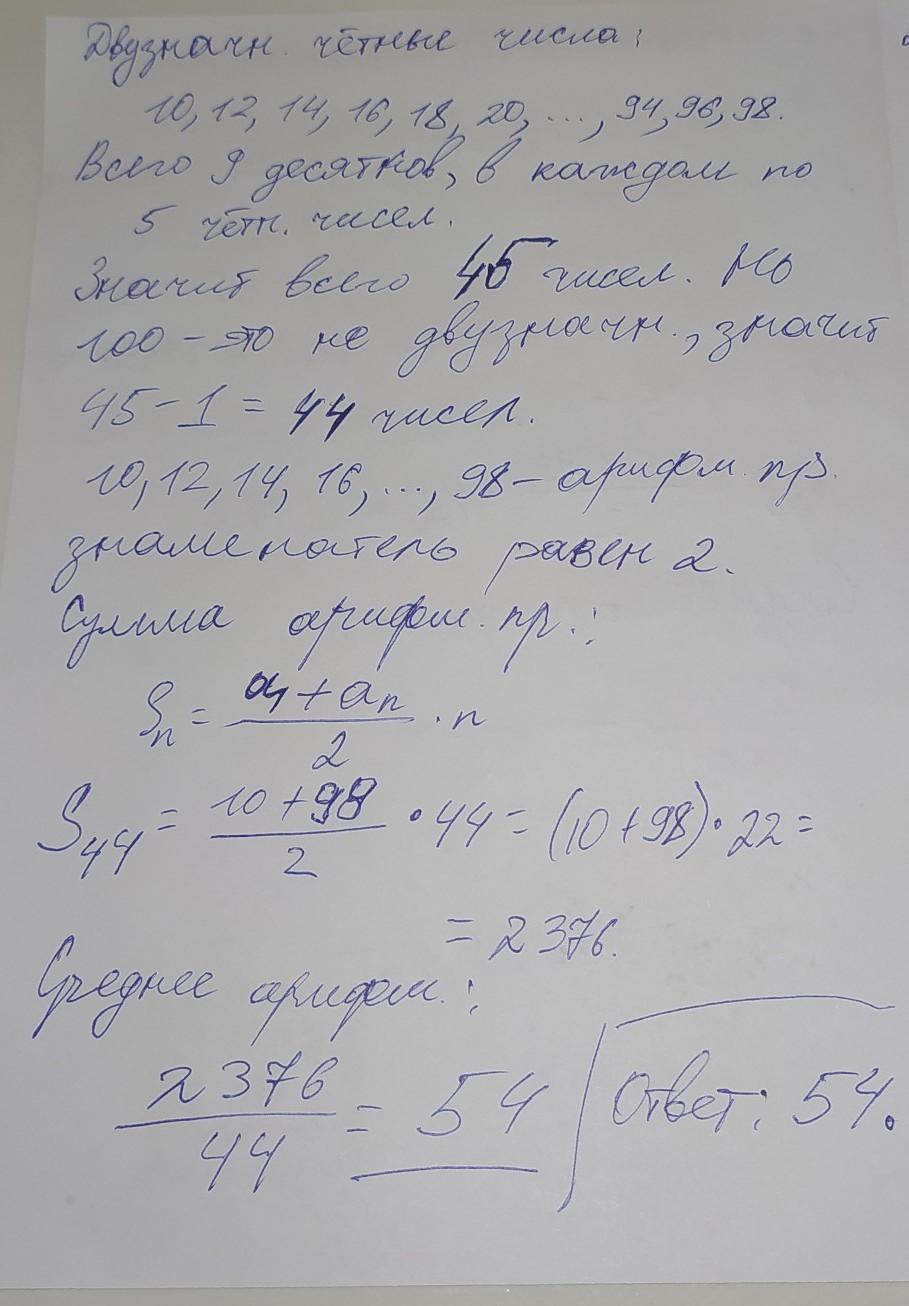 Двузначн. чётные числа:
10, 12, 14, 16, 18, 20, ..., 94, 96, 98.
Всего 9 десятков, в каждом по
5 чётн. чисел.
Значит всего 45 чисел. Но
100 - это не двузначн., значит
45 - 1 = 44 чисел.
10, 12, 14, 16, ..., 98 - арифм. пр.
знаменатель равен 2.
Сумма арифм. пр.:
Sₙ = (a₁ + aₙ)/2 · n
S₄₄ = (10 + 98)/2 · 44 = (10 + 98) · 22 =
= 2376.
Среднее арифм.:
2376/44 = 54
Ответ: 54.